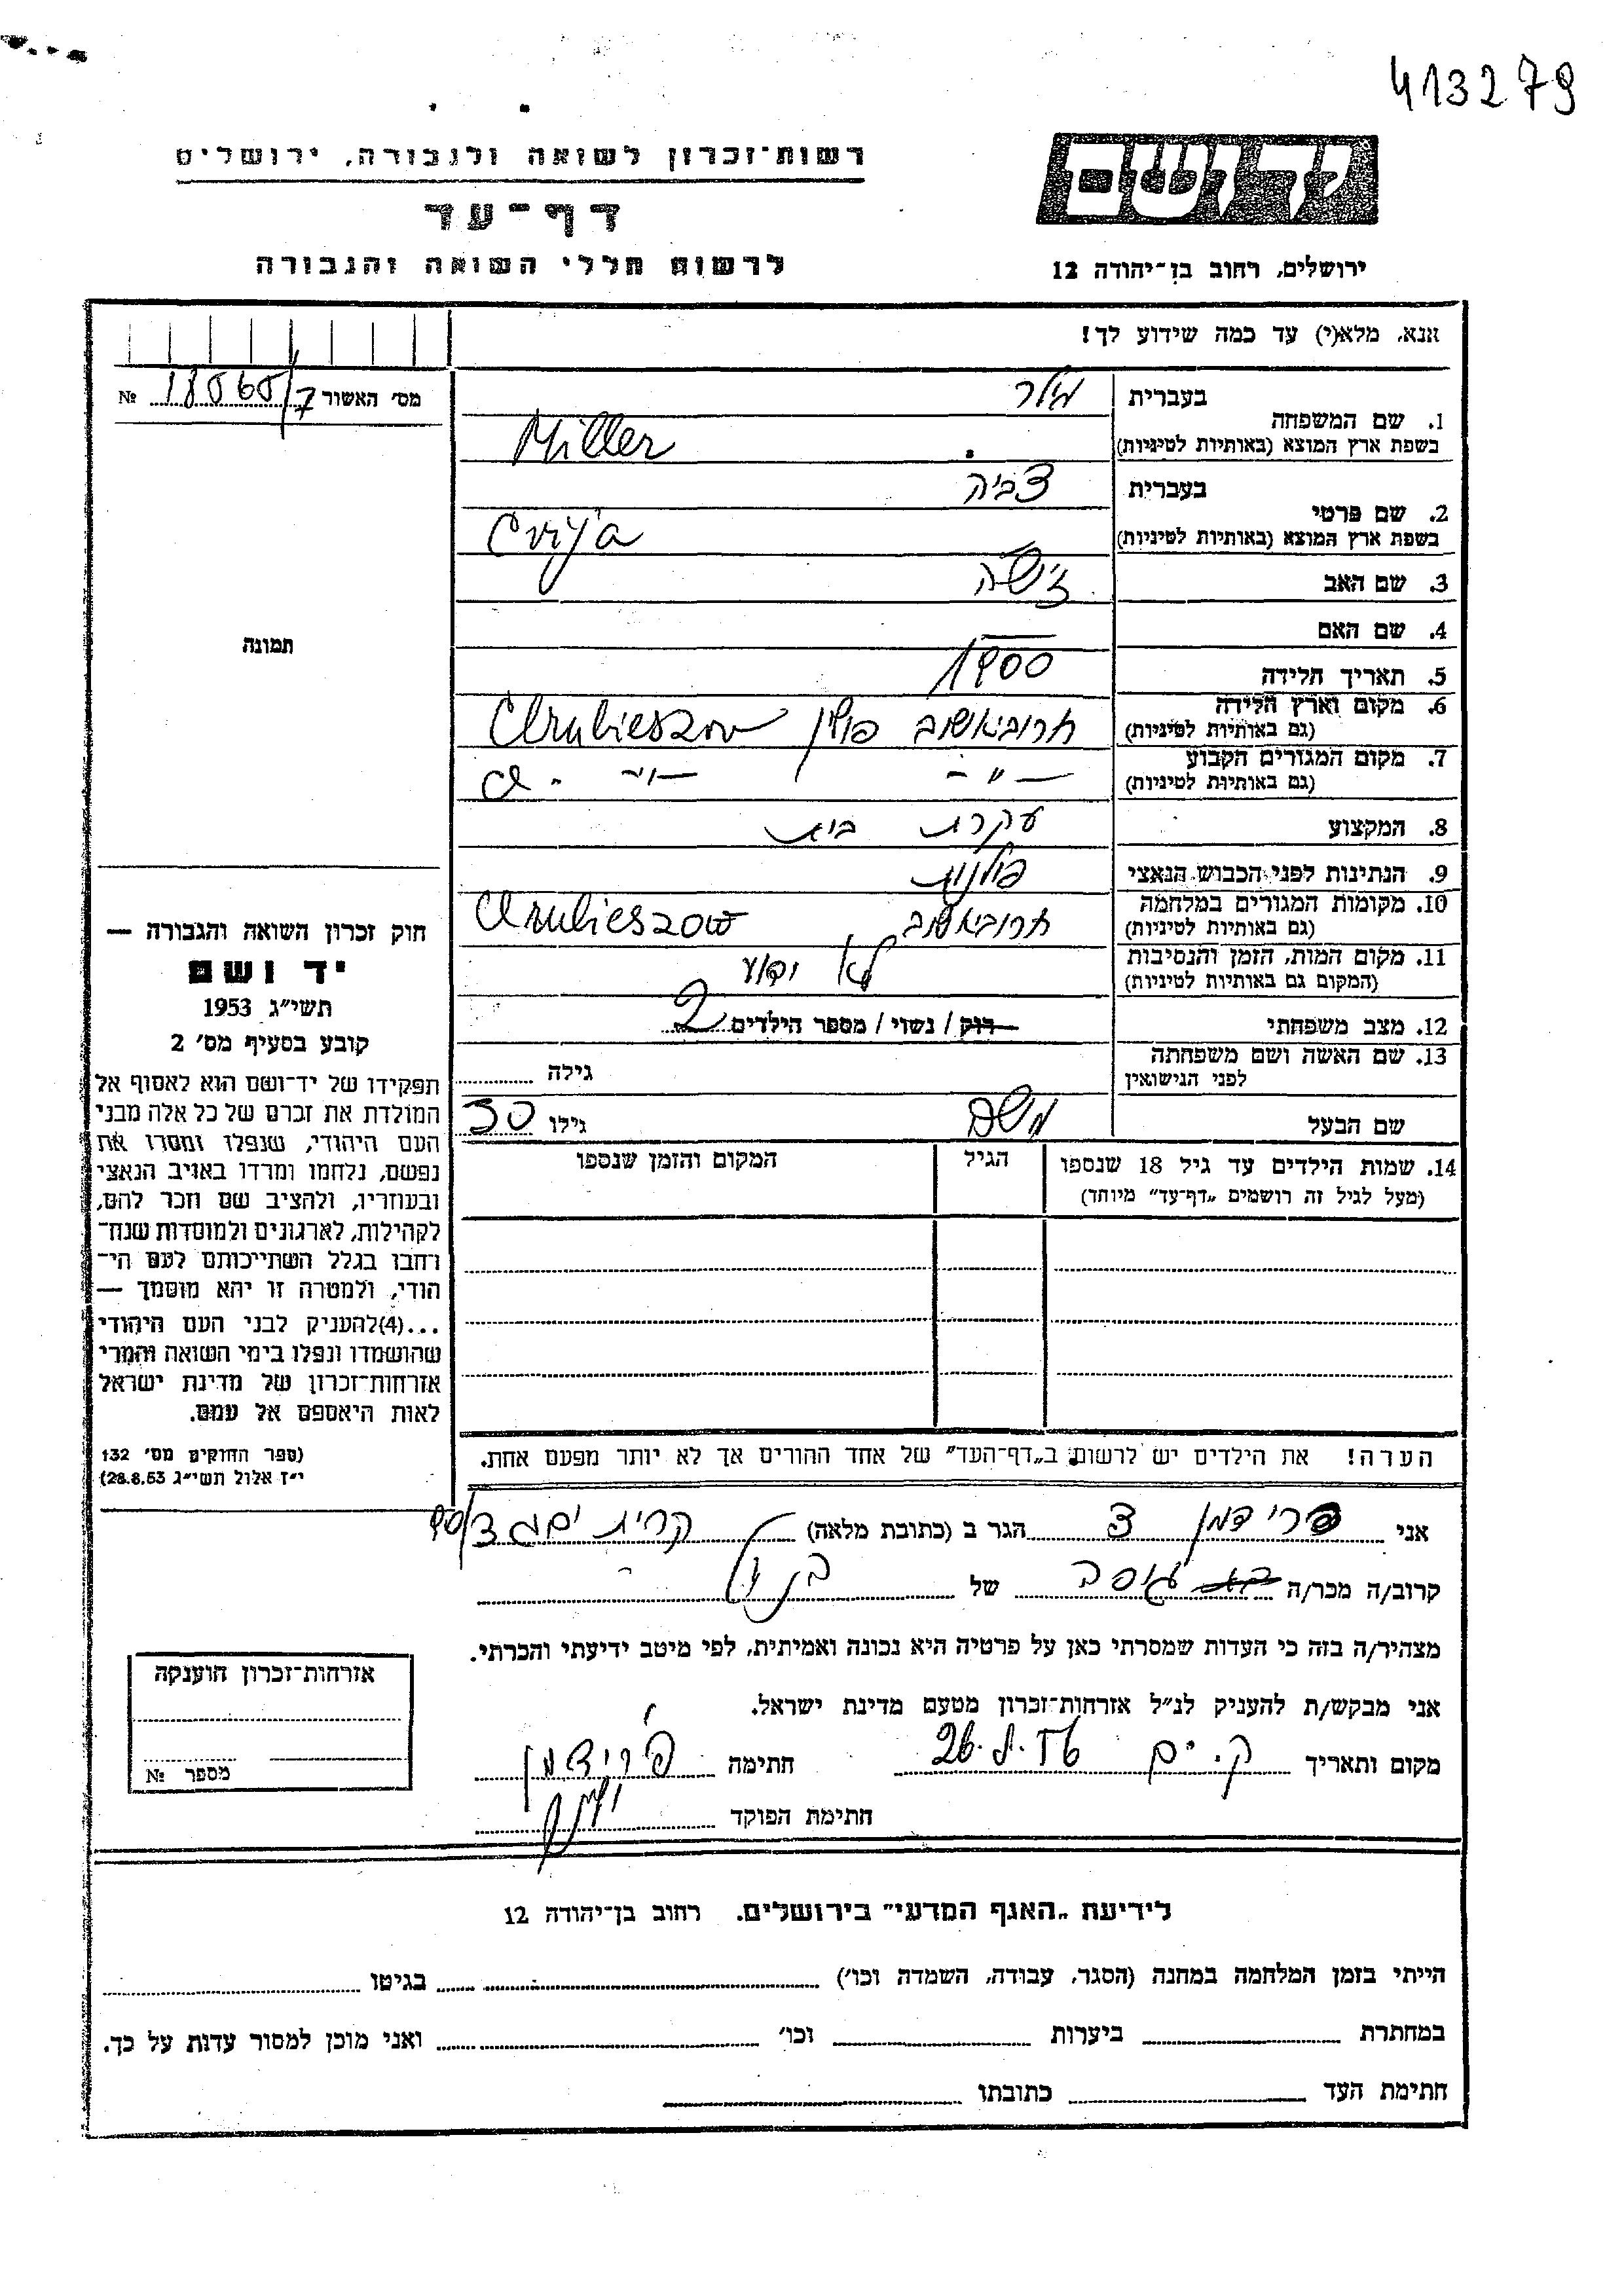 413279
רשות־זכרון לשואה ולגבורה, ירושלים
ידושם
דף־עד
לרשום חללי השואה והגבורה
ירושלים, רחוב בן־יהודה 12
אנא, מלא(י) עד כמה שידוע לך!
מס׳ האשור 18565/7 №
1. שם המשפחה
בעברית מילר
בשפת ארץ המוצא (באותיות לטיניות) Miller
2. שם פרטי
בעברית צביה
בשפת ארץ המוצא (באותיות לטיניות) Cvyja
3. שם האב זישה
4. שם האם —
5. תאריך הלידה 1900
6. מקום וארץ הלידה חרוביאשוב פולין Chrubieszow
(גם באותיות לטיניות)
7. מקום המגורים הקבוע —״— —״—
(גם באותיות לטיניות)
8. המקצוע עקרת בית
9. הנתינות לפני הכבוש הנאצי פולנית
10. מקומות המגורים במלחמה חרוביאשוב Chrubieszow
(גם באותיות לטיניות)
11. מקום המות, הזמן והנסיבות לא ידוע
(המקום גם באותיות לטיניות)
12. מצב משפחתי רוק / נשוי / מספר הילדים 2
13. שם האשה ושם משפחתה
לפני הנישואין
גילה
שם הבעל משה גילו 50
14. שמות הילדים עד גיל 18 שנספו
(מעל לגיל זה רושמים „דף־עד״ מיוחד)
הגיל
המקום והזמן שנספו
הערה! את הילדים יש לרשום ב„דף־העד״ של אחד ההורים אך לא יותר מפעם אחת.
תמונה
חוק זכרון השואה והגבורה —
יד ושם
תשי״ג 1953
קובע בסעיף מס׳ 2
תפקידו של יד־ושם הוא לאסוף אל
המולדת את זכרם של כל אלה מבני
העם היהודי, שנפלו ומסרו את
נפשם, נלחמו ומרדו באויב הנאצי
ובעוזריו, ולהציב שם וזכר להם,
לקהילות, לארגונים ולמוסדות שנח־
רחבו בגלל השתייכותם לעם הי־
הודי, ולמטרה זו יהא מוסמך —
...(4)להעניק לבני העם היהודי
שהושמדו ונפלו בימי השואה והמרי
אזרחות־זכרון של מדינת ישראל
לאות היאספם אל עמם.
(ספר החוקים מס׳ 132
י״ז אלול תשי״ג 28.8.53)
אני פרידמן צ הגר ב (כתובת מלאה) קרית ים
קרוב/ה מכר/ה של
מצהיר/ה בזה כי העדות שמסרתי כאן על פרטיה היא נכונה ואמיתית, לפי מיטב ידיעתי והכרתי.
אני מבקש/ת להעניק לנ״ל אזרחות־זכרון מטעם מדינת ישראל.
מקום ותאריך ק. ים חתימה פרידמן
חתימת הפוקד
אזרחות־זכרון הוענקה
מספר №
לידיעת „האגף המדעי״ בירושלים. רחוב בן־יהודה 12
הייתי בזמן המלחמה במחנה (הסגר, עבודה, השמדה וכו׳) בגיטו
במחתרת ביערות וכו׳ ואני מוכן למסור עדות על כך.
חתימת העד כתובתו